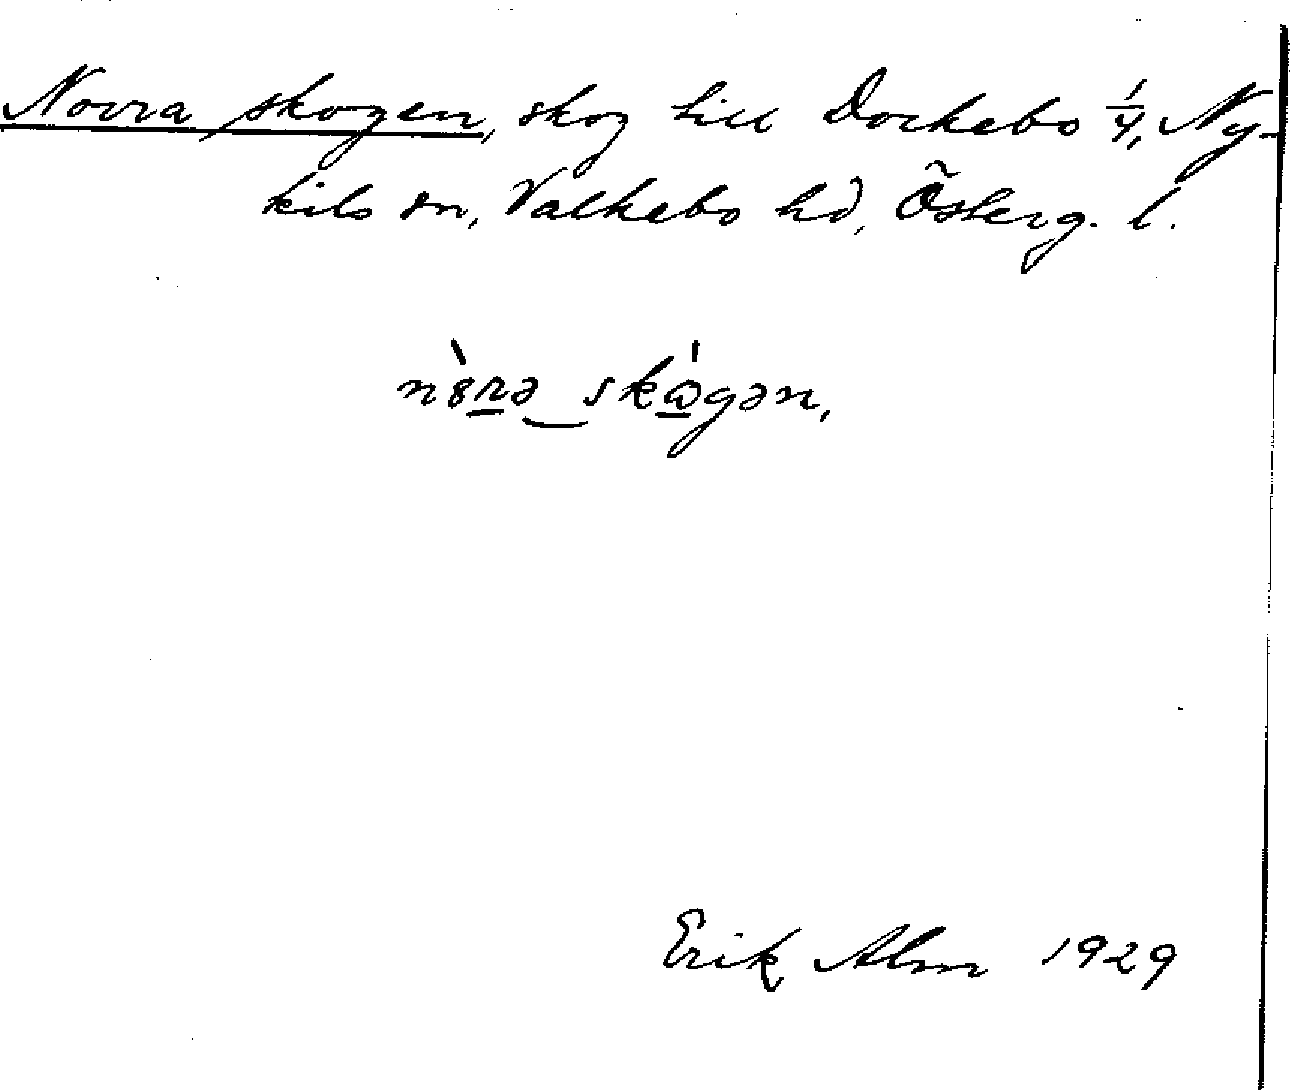 Norra skogen, skog till Dockebo 1/4, Ny-
kils sn, Valkebo hd, Österg. l.
n8̀rə skὼgən,
Erik Alm 1929